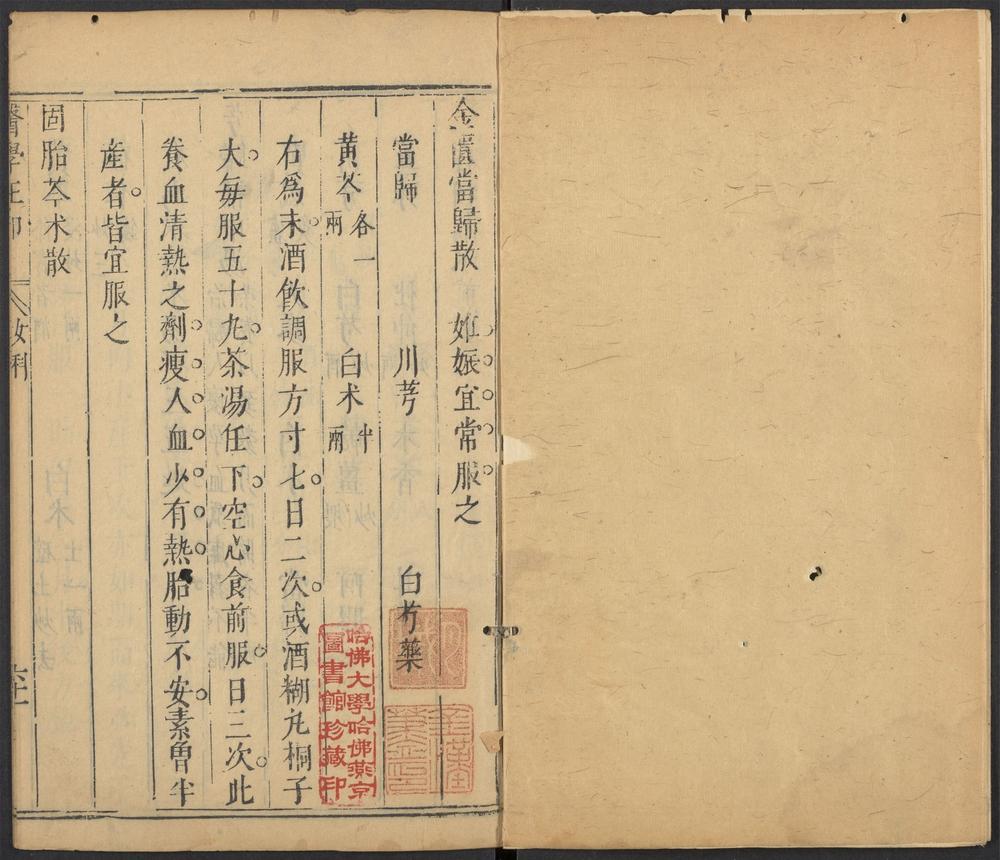 金匱當歸散 妊娠宜常服之
當歸 川芎 白芍藥
黄芩各一兩 白术半兩
右爲末酒飲調服方寸七日二次或酒糊丸梧子
大毎服五十丸茶湯任下空心食前服日三次此
養血清熱之劑瘦人血少有熱胎動不安素曾半
產者皆宜服之
固胎芩术散
醫學 女科
哈佛大學哈佛燕京
圖書館珍藏印